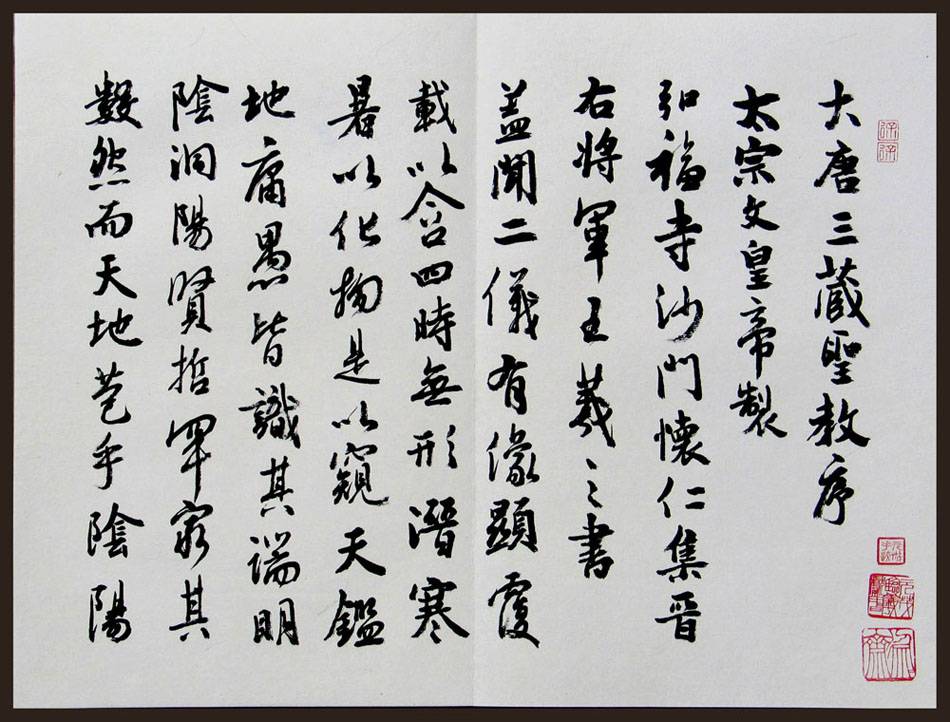 大唐三藏聖教序
太宗文皇帝製
弘福寺沙門懷仁集晉
右將軍王羲之書
蓋聞二儀有像顯覆
載以含四時無形潛寒
暑以化物是以窺天鑑
地庸愚皆識其端明
陰洞陽賢哲罕窮其
數然而天地苞乎陰陽